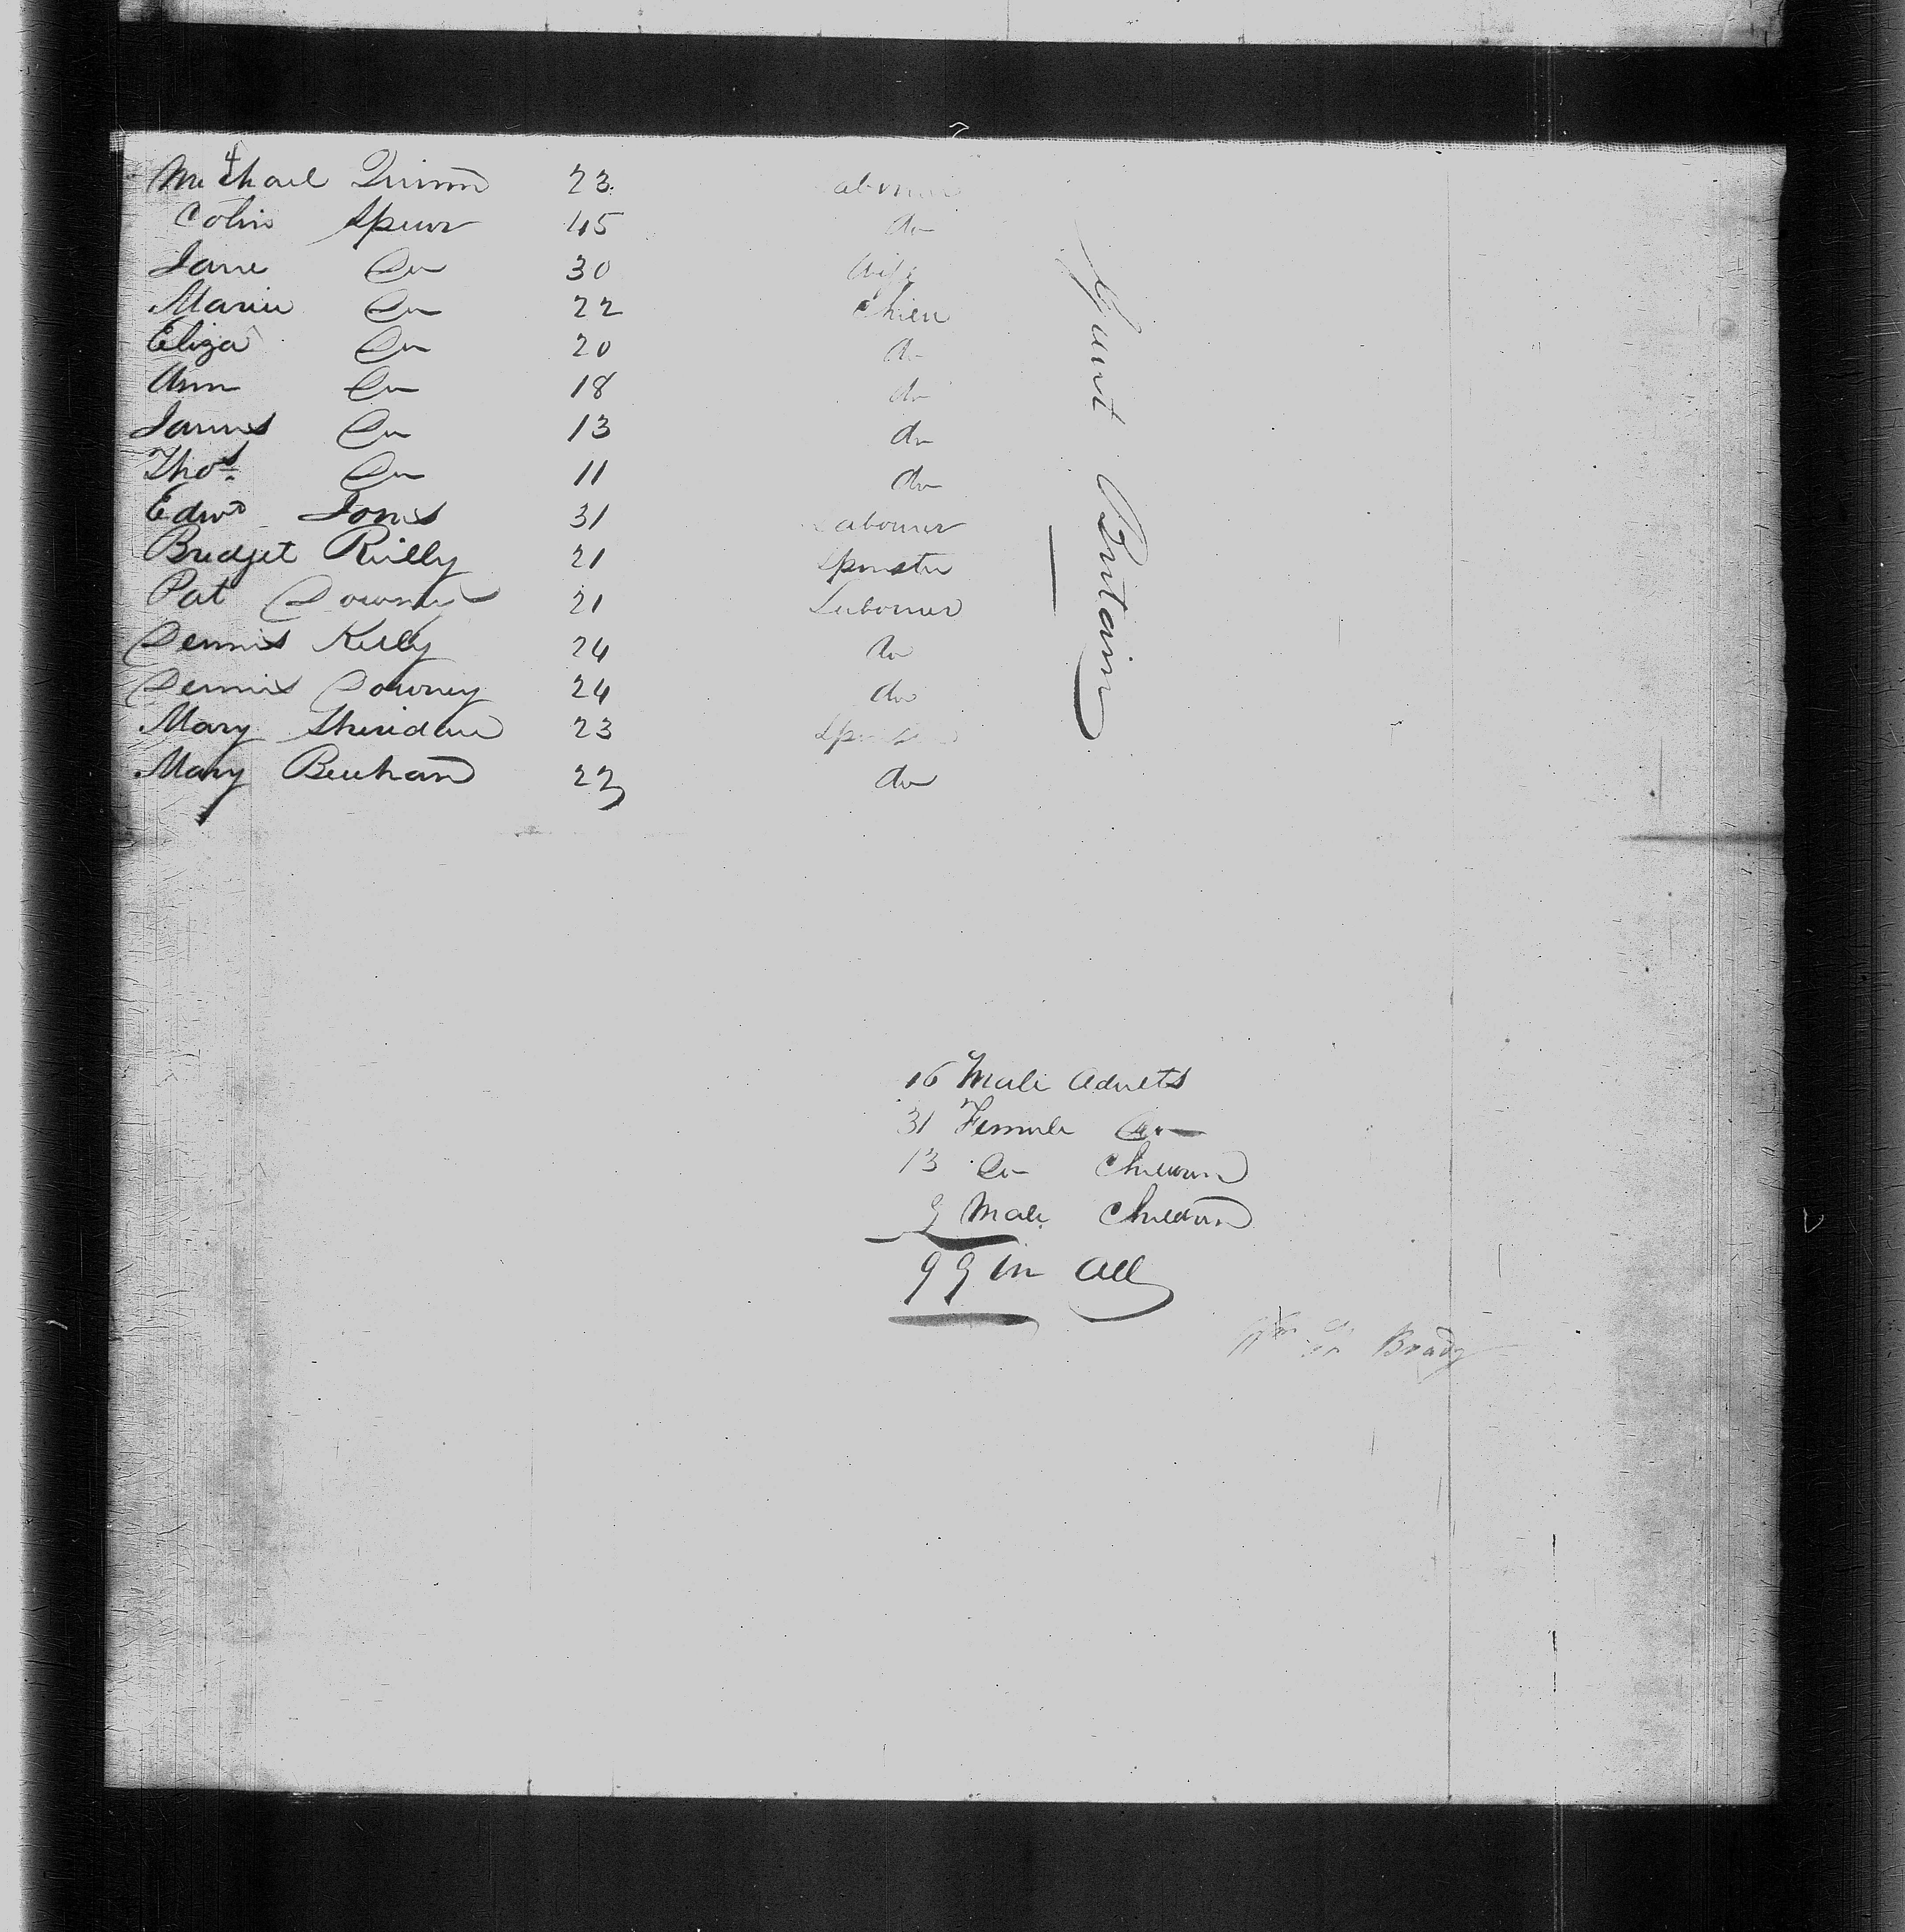 Michael Quinn 23 Labourer
Colin Speer 45 do
Jane Do 30 Wife
Maria Do 22 Children
Eliza Do 20 do
Ann Do 18 do
James Do 13 do
Thos. Do 11 do
Edwd Jones 31 Labourer
Bridget Reilly 21 Spinster
Pat 21 Labourer
Dennis Kelly 24 do
Dennis Downey 24 do
Mary Sheridan 23 Spinster
Mary 22 do
Great Britain
Male Adults
31 Female Do
13 Do Children
9 Male Children
99 in All
Brady